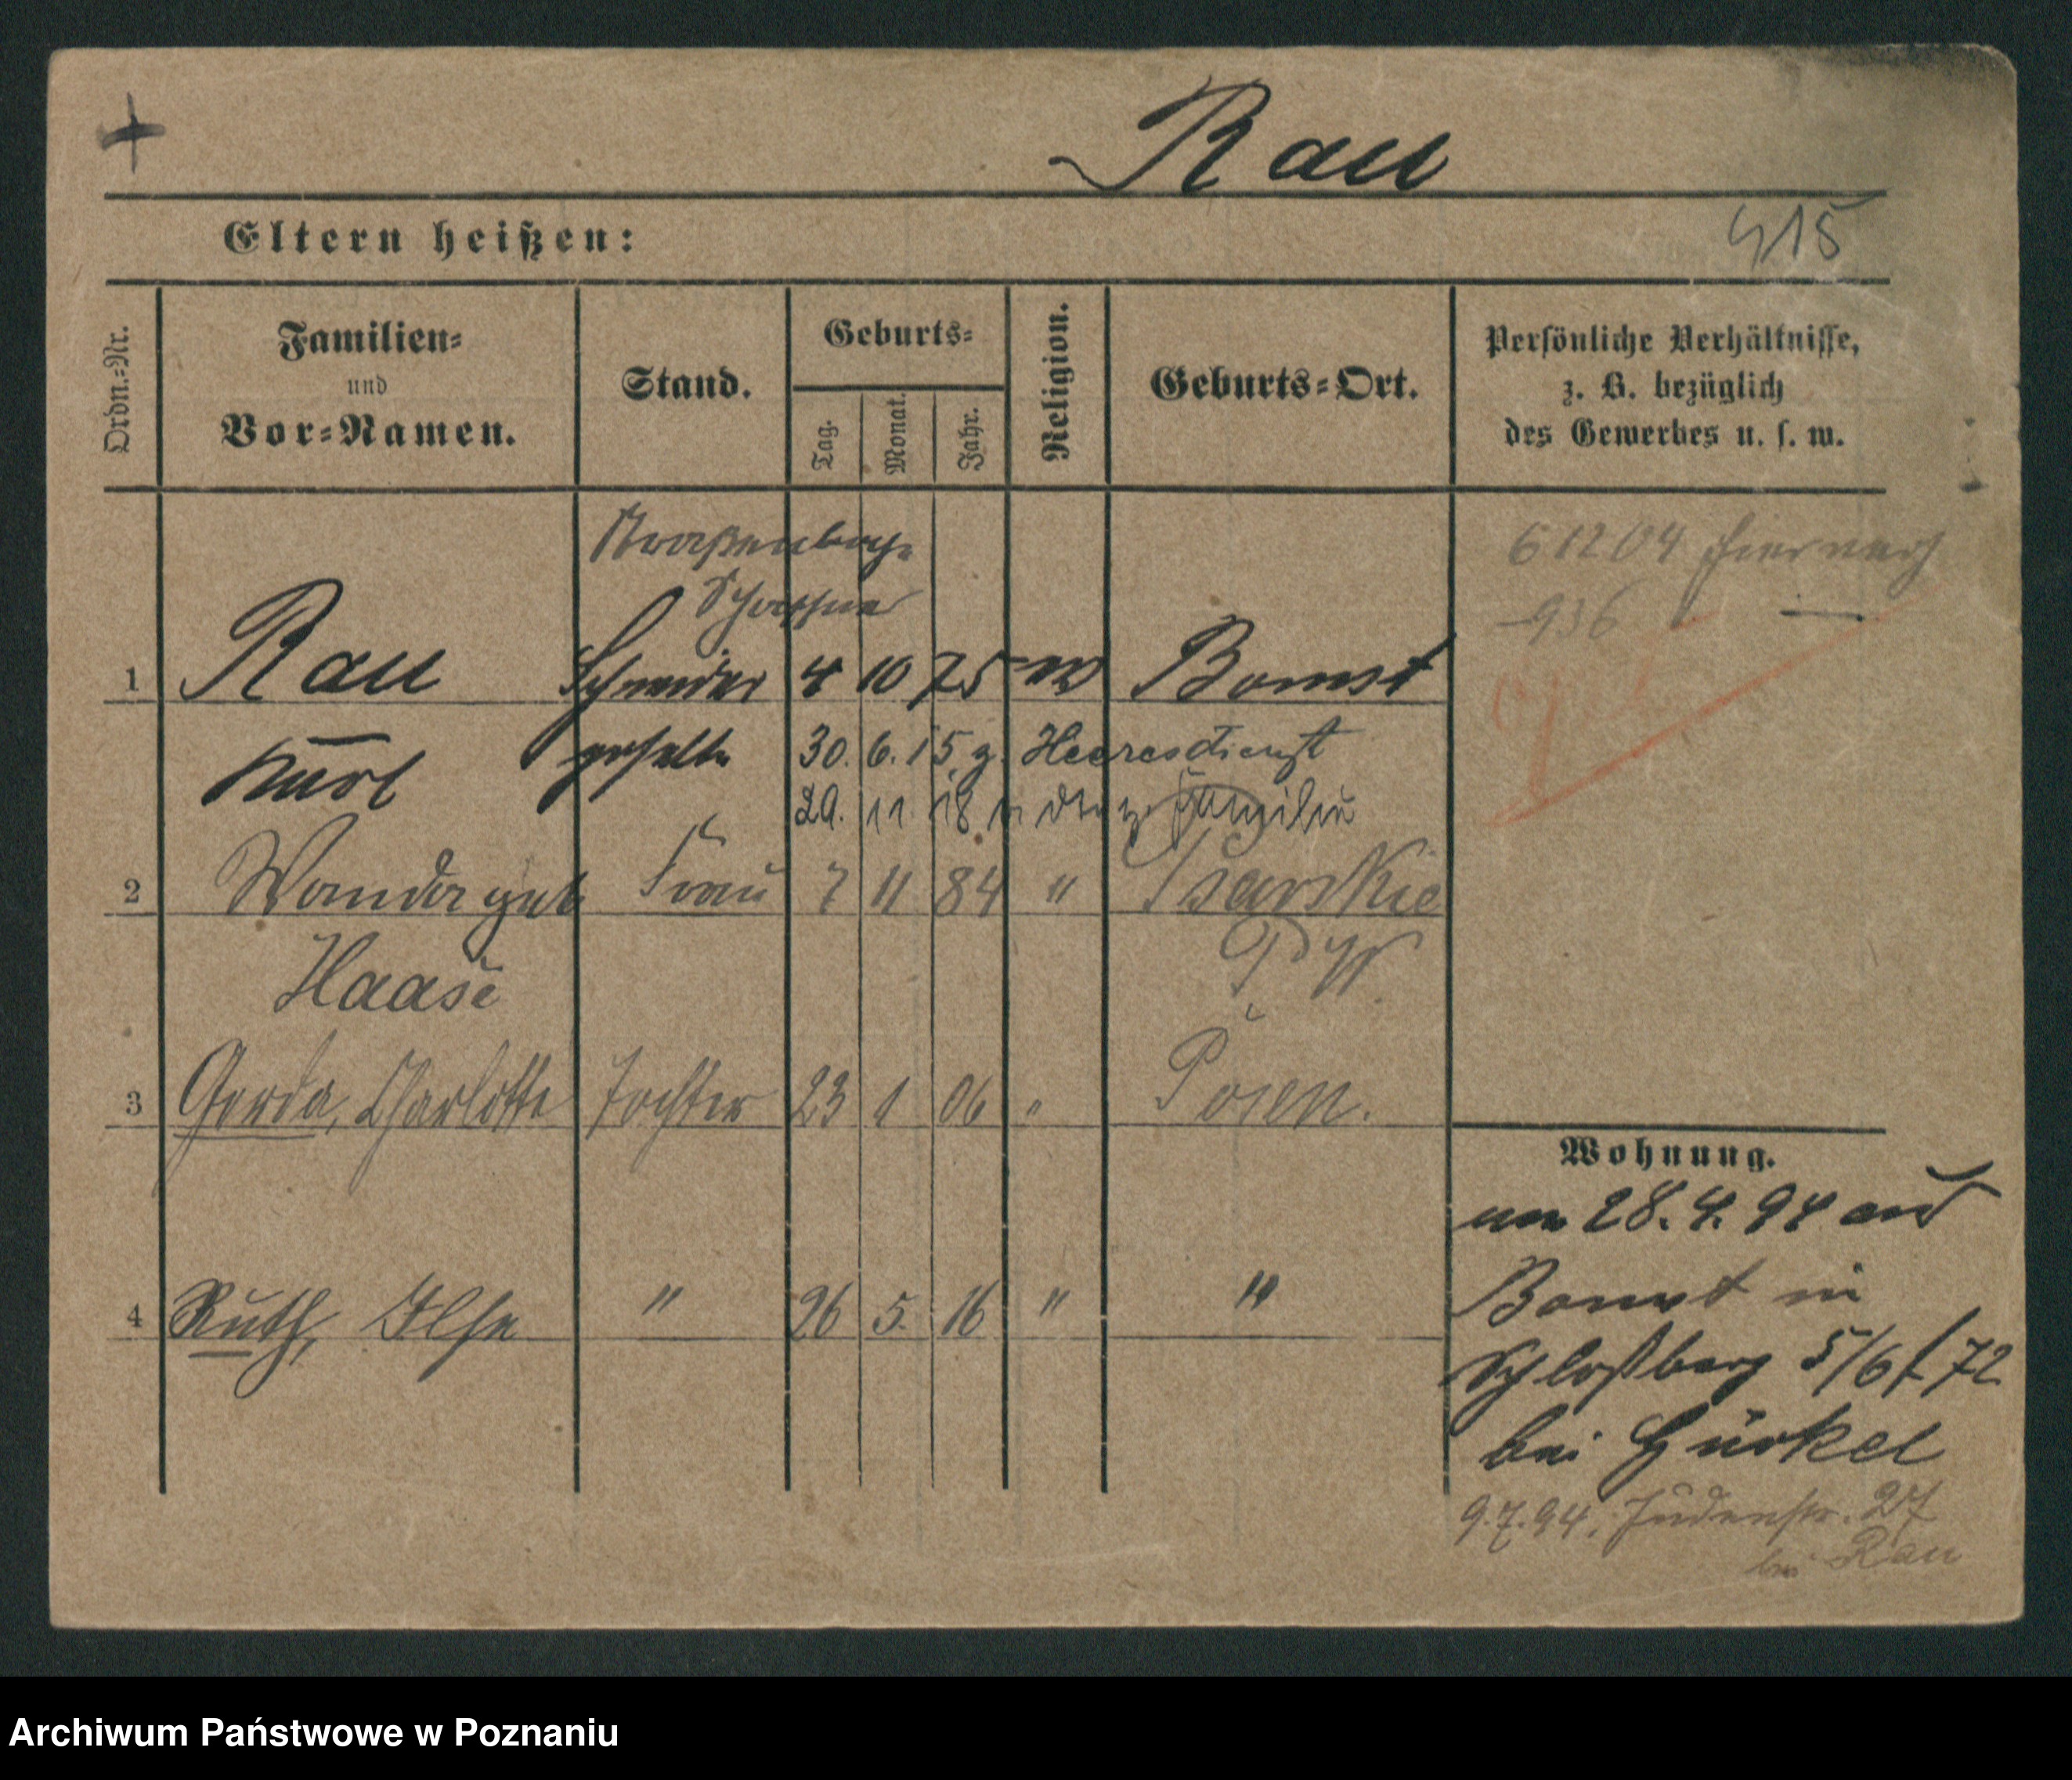 Rau
Eltern heißen:
415
Ordn.=Nr.
Familien=
und
Vor=Namen.
Stand.
Geburts=
Tag.
Monat.
Jahr.
Religion.
Geburts=Ort.
Persönliche Verhältnisse,
z. B. bezüglich
des Gewerbes u. s. w.
Straßenbahn
Schaffner
6 12 04 hier
936
1 Rau Schneider 4 10 75 Bomst
Karl geselle 30. 6. 15 z. Heeresdienst
29. 11 18 Familie
2 Wanda geb Frau 7 11 84 "
Haase
3 Gerda, Charlotte Tochter 23 1 06 " Posen.
4 Ruth, Ilse " 26 5. 16 " "
Wohnung.
28. 4. 94 aus
Bomst in
Schloßberg 5/6 72
bei Gürkel
9.7.94. Judenstr. 27
bei Rau
Archiwum Państwowe w Poznaniu